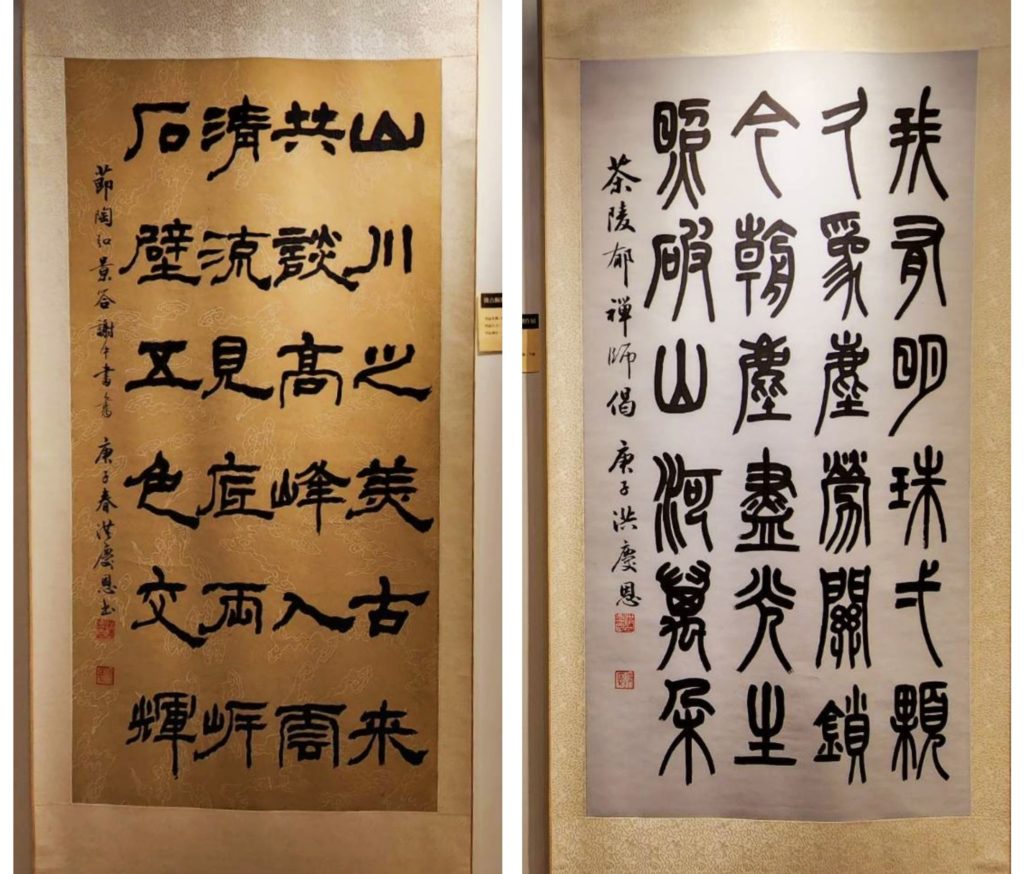 山川之美古来
共談高峰入雲
清流見底兩岸
石壁五色交輝
節陶弘景答謝中書書 庚子春洪慶恩書
我有明珠弌顆
久塵勞關鎖
今朝塵盡光生
照破山河萬朵
茶陵郁禪師偈 庚子洪慶恩